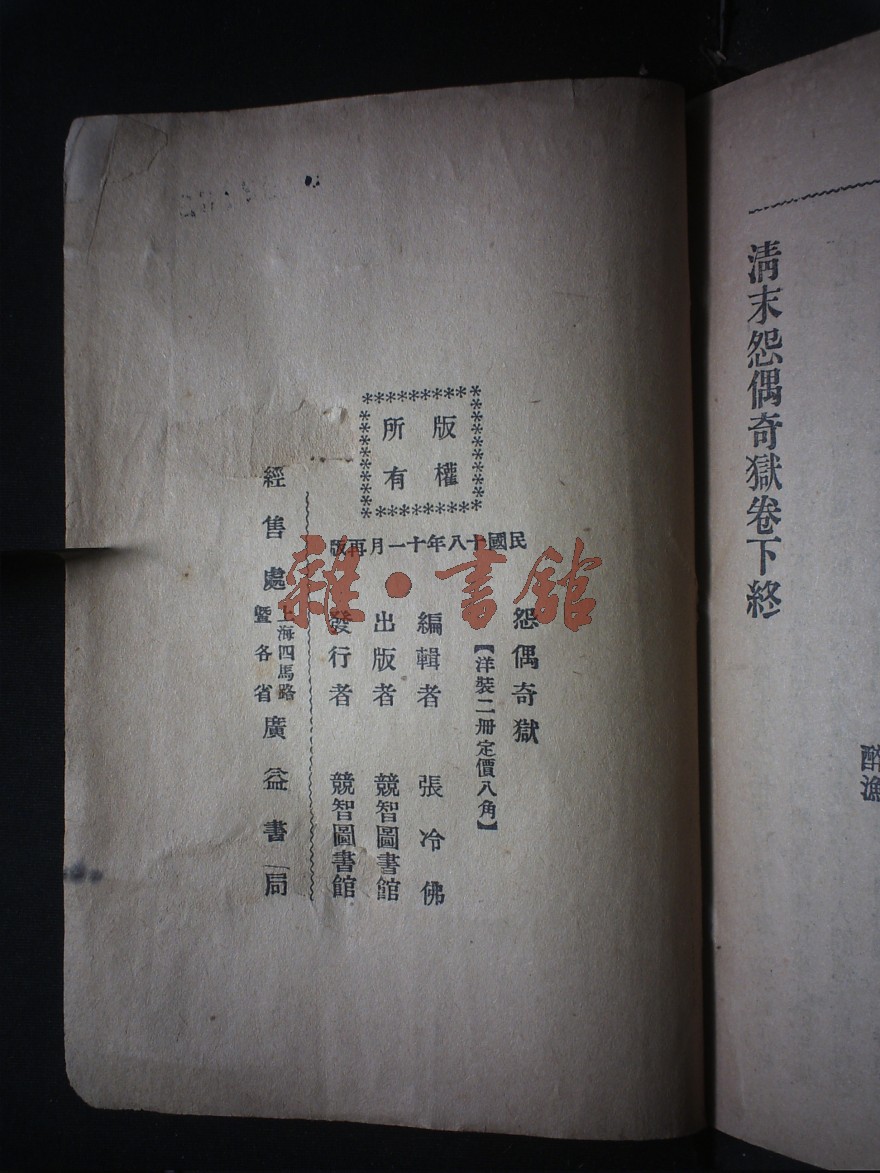 清末怨偶奇獄卷下終
版權
所有
民國十八年十一月再版
怨偶奇獄
【洋裝二冊定價八角】
編輯者 張冷佛
出版者 競智圖書館
發行者 競智圖書館
經售處 上海四馬路暨各省 廣益書局
雜·書館